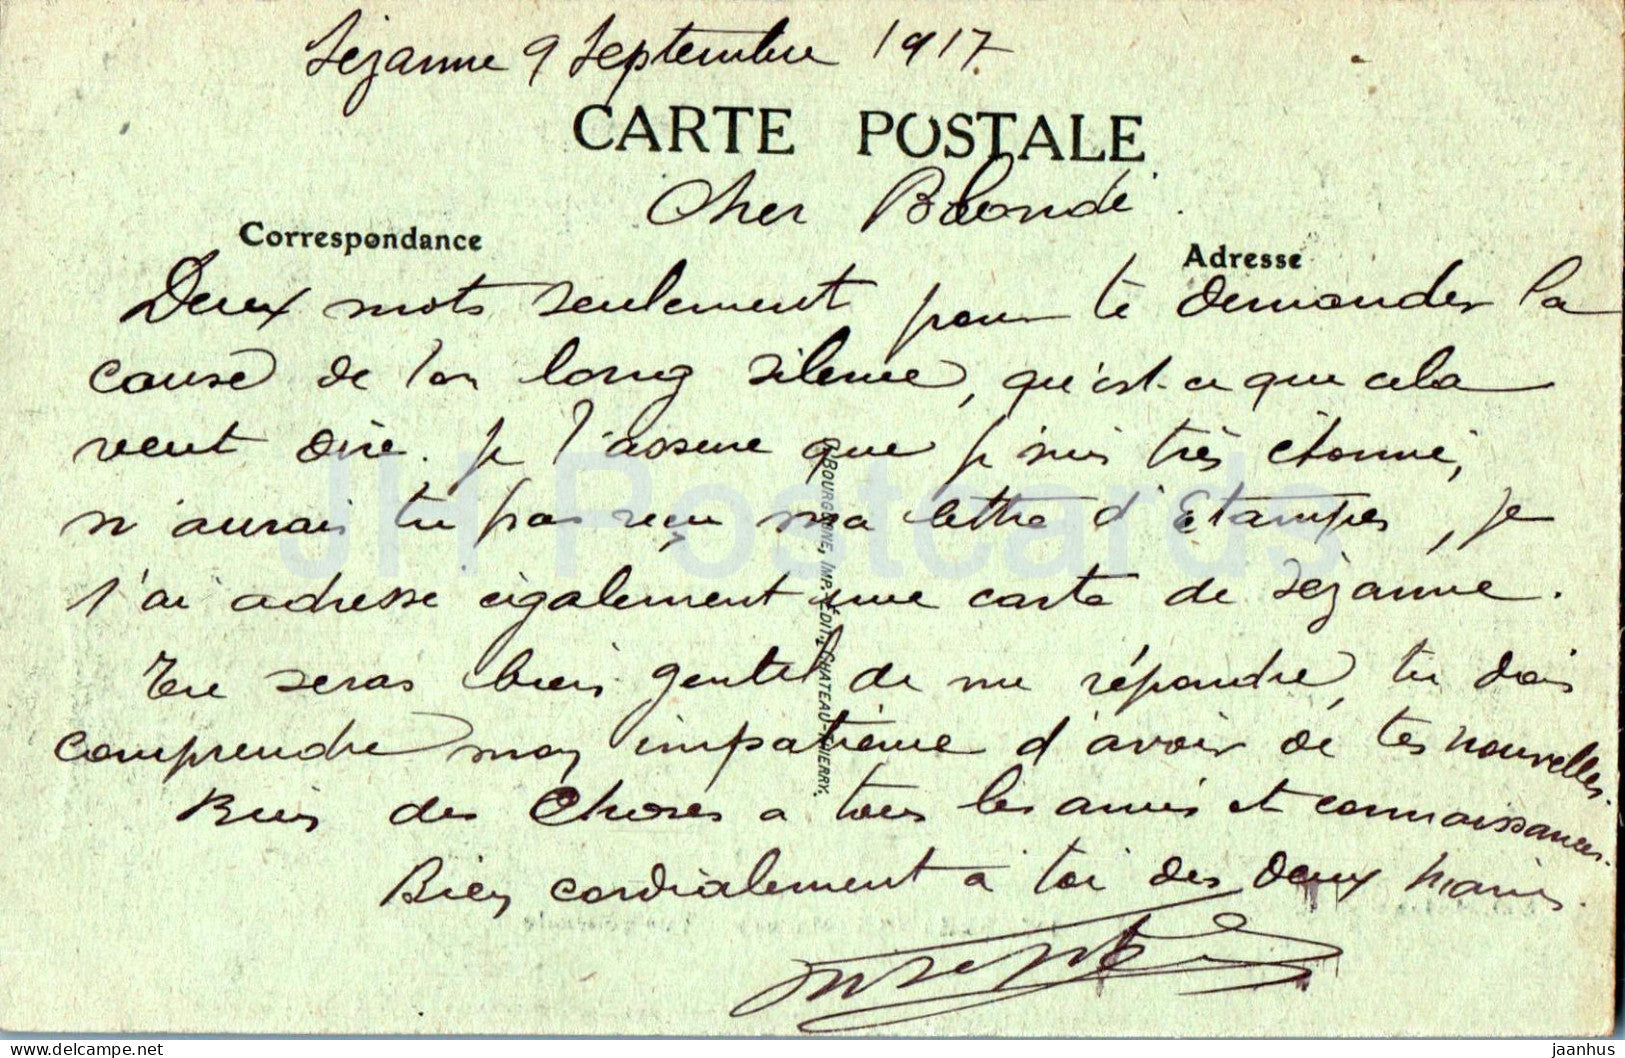 Sézanne 9 Septembre 1917
CARTE POSTALE
Cher Blondi
Correspondance
Adresse
Deux mots seulement pour te demander la
cause de ton long silence, qu'est-ce que cela
veut dire. je t'assure que je suis très étonné,
n'aurais tu pas reçu ma lettre d'Etampes, je
t'ai adresse également une carte de Sézanne.
Tu seras bien gentil de me répondre, tu dois
comprendre mon impatience d'avoir de tes nouvelles.
Bien des choses a tous les amis et connaissances.
Bien cordialement a toi des deux mains.
BOURGOGNE, IMP. ÉDIT., CHATEAU-THIERRY.
JH Postcards
JH Postcards
jaanhus